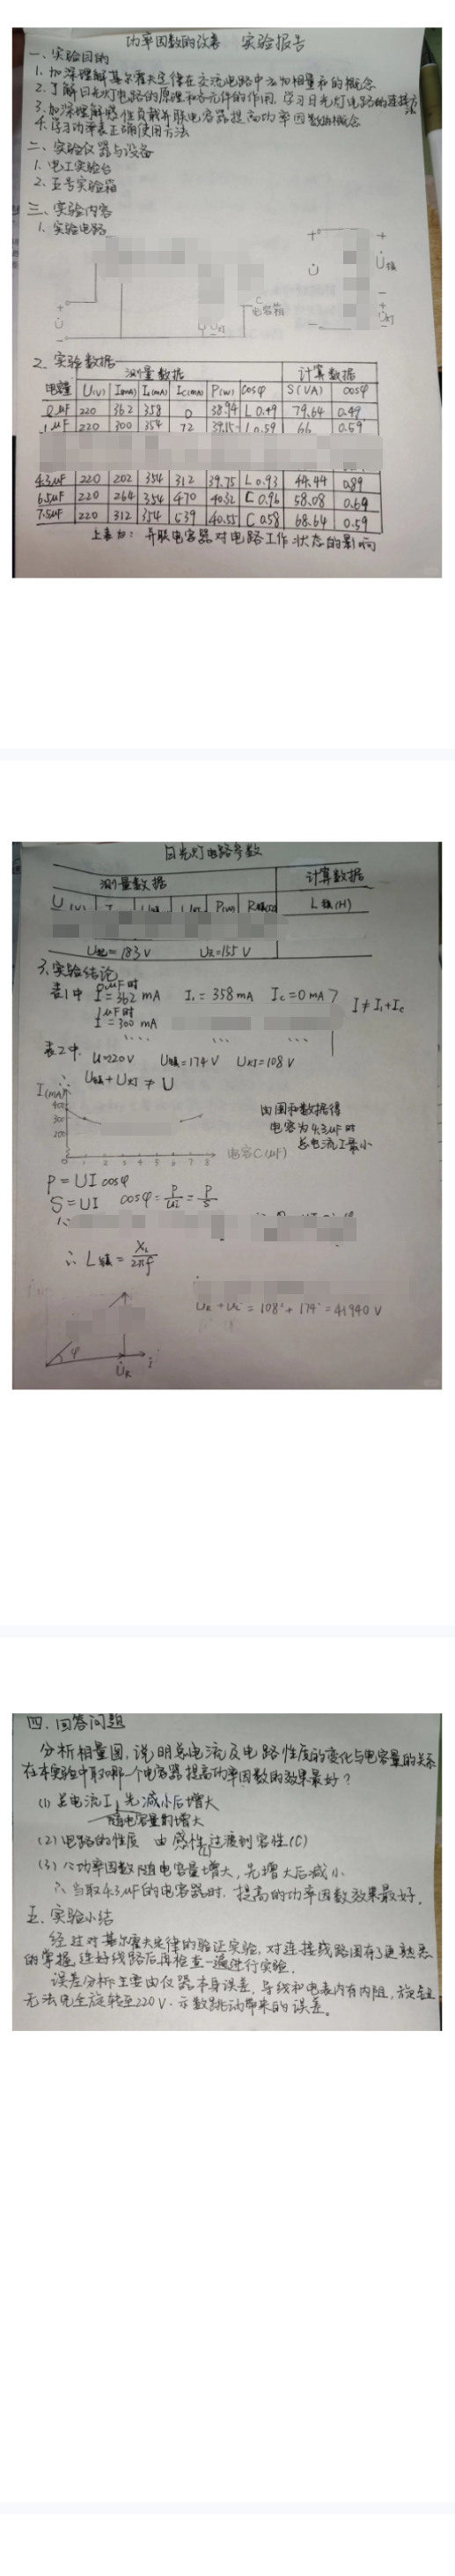 功率因数的改善 实验报告
一、实验目的
1. 加深理解基尔霍夫定律在交流电路中应为相量和的概念
2. 了解日光灯电路的原理和各元件的作用,学习日光灯电路的连接方法
3. 加深理解感性负载并联电容器提高功率因数的概念
4. 学习功率表正确使用方法
二、实验仪器与设备
1. 电工实验台
2. 五号实验箱
三、实验内容
1. 实验电路
+ U̇ - C 电容箱 U灯
+ U̇ - + U̇镇 - + U̇灯 -
2. 实验数据
测量数据 计算数据
电容量 U(V) I(mA) I₁(mA) Ic(mA) P(W) cosφ S(VA) cosφ
0μF 220 362 358 0 38.94 L 0.49 79.64 0.49
1μF 220 300 354 72 39.15 L 0.59 66 0.59
4.3μF 220 202 354 312 39.75 L 0.93 44.44 0.89
6.5μF 220 264 354 470 40.32 C 0.96 58.08 0.69
7.5μF 220 312 354 539 40.55 C 0.58 68.64 0.59
上表为:并联电容器对电路工作状态的影响
日光灯电路参数
测量数据 计算数据
U(V) P(W) R镇(Ω) L镇(H)
= 183 V = 155 V
3. 实验结论
表1中 0μF时 I = 362 mA I₁ = 358 mA Ic = 0 mA
1μF时 I = 300 mA I ≠ I₁+Ic
.... ... ...
表2中. U=220V U镇=174V U灯=108V
∴ U镇+U灯 ≠ U
I(mA)
400
300
200
0 1 2 3 4 5 6 7 8 电容C(μF)
由图和数据得
电容为4.3μF时
总电流I最小
P = UI cosφ
S = UI cosφ = P/UI = P/S
∴ L镇 = X_L/2πf
= 108² + 174² = 41940 V
φ U̇_R i
四、回答问题
分析相量图,说明总电流及电路性质的变化与电容量的关系
在本实验中取哪一个电容器提高功率因数的效果最好?
(1) 总电流I 先减小后增大
随电容量的增大
(2) 电路的性质 由感性(L)过渡到容性(C)
(3) 功率因数随电容量增大,先增大后减小
∴ 当取4.3μF的电容器时,提高的功率因数效果最好.
五、实验小结
经过对基尔霍夫定律的验证实验,对连接线路图有了更熟悉
的掌握,连好线路后再检查一遍进行实验.
误差分析主要由仪器本身误差,导线和电表内有内阻,旋钮
无法完全旋转至220V.示数跳动带来的误差。